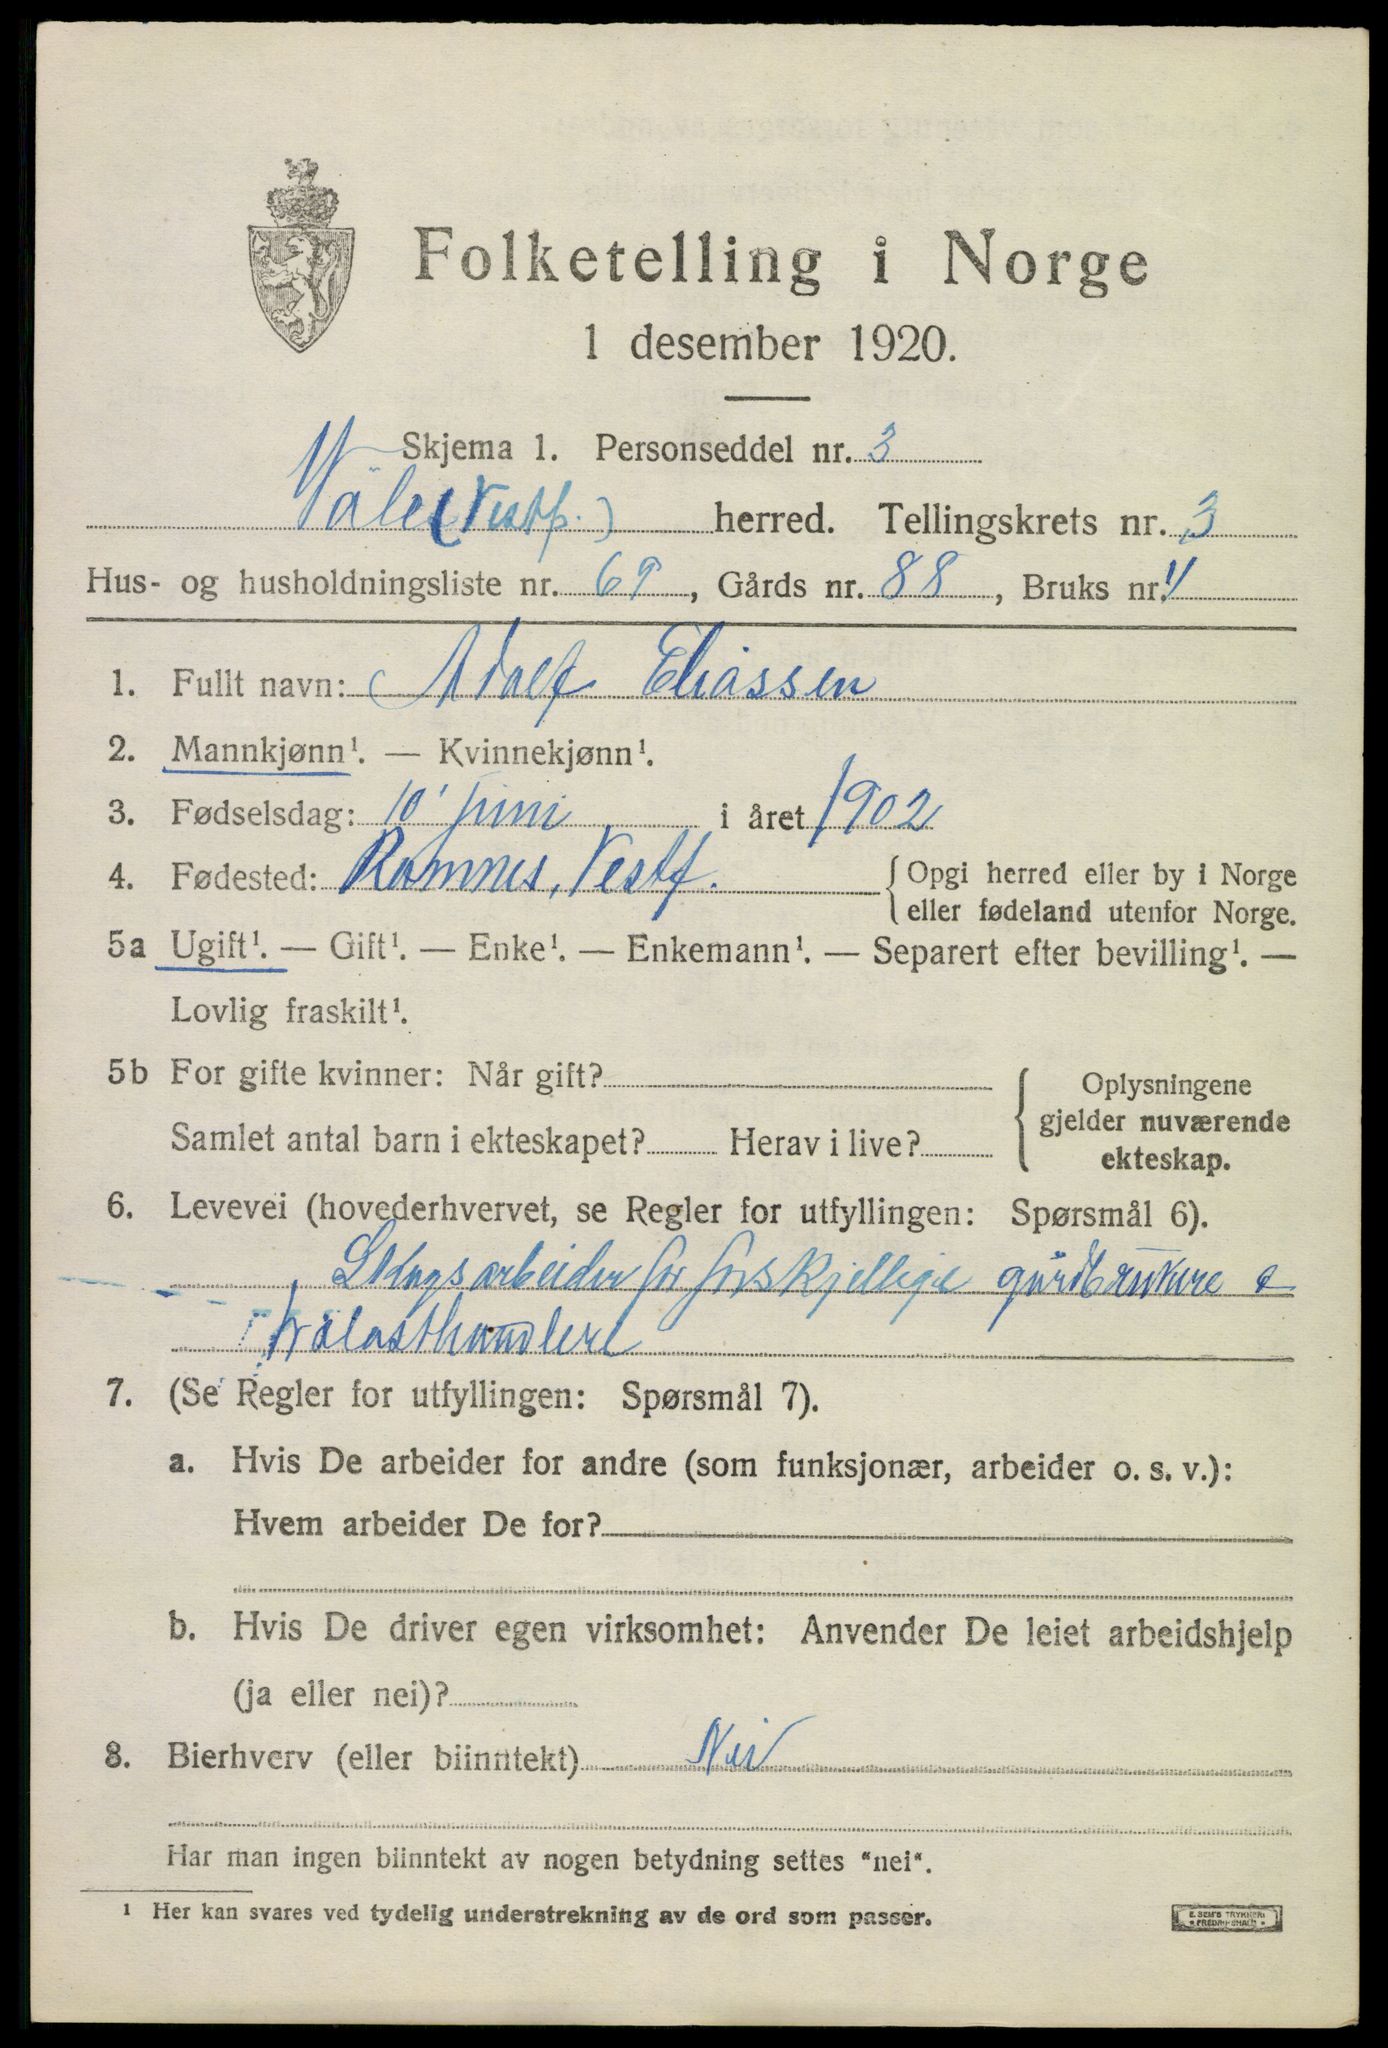 Folketelling i Norge
1 desember 1920.
Skjema 1. Personseddel nr. 3
Våle (Vestf.) herred. Tellingskrets nr. 3
Hus- og husholdningsliste nr. 69, Gårds nr. 88, Bruks nr.
1. Fullt navn: Adolf Eliassen
2. Mannkjønn¹. — Kvinnekjønn¹.
3. Fødselsdag: 10' juni i året 1902
4. Fødested: Ramnes, Vestf. {Opgi herred eller by i Norge
eller fødeland utenfor Norge.
5a Ugift¹. — Gift¹. — Enke¹. — Enkemann¹. — Separert efter bevilling¹. —
Lovlig fraskilt¹.
5b For gifte kvinner: Når gift?
Samlet antal barn i ekteskapet? Herav i live?
Oplysningene
gjelder nuværende
ekteskap.
6. Levevei (hovederhvervet, se Regler for utfyllingen: Spørsmål 6).
Skogsarbeider for forskjellige gårdbrukere &
trælasthandlere
7. (Se Regler for utfyllingen: Spørsmål 7).
a. Hvis De arbeider for andre (som funksjonær, arbeider o. s. v.):
Hvem arbeider De for?
b. Hvis De driver egen virksomhet: Anvender De leiet arbeidshjelp
(ja eller nei)?
8. Bierhverv (eller biinntekt) Nei
Har man ingen biinntekt av nogen betydning settes "nei".
¹ Her kan svares ved tydelig understrekning av de ord som passer.
E. SEM'S TRYKKERI
FREDRIKSHALD